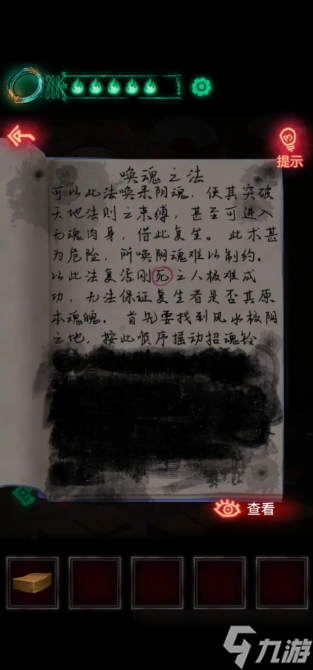 提示
唤魂之法
可以此法唤来阴魂，使其突破
天地法则之束缚，甚至可进入
无魂肉身，借此复生。此术甚
为危险，所唤阴魂难以制约。
以此法复活刚死之人极难成
功，无法保证复生者是否其原
本魂魄。首先要找到风水极阴
之地，按此顺序摇动招魂铃
查看
九游